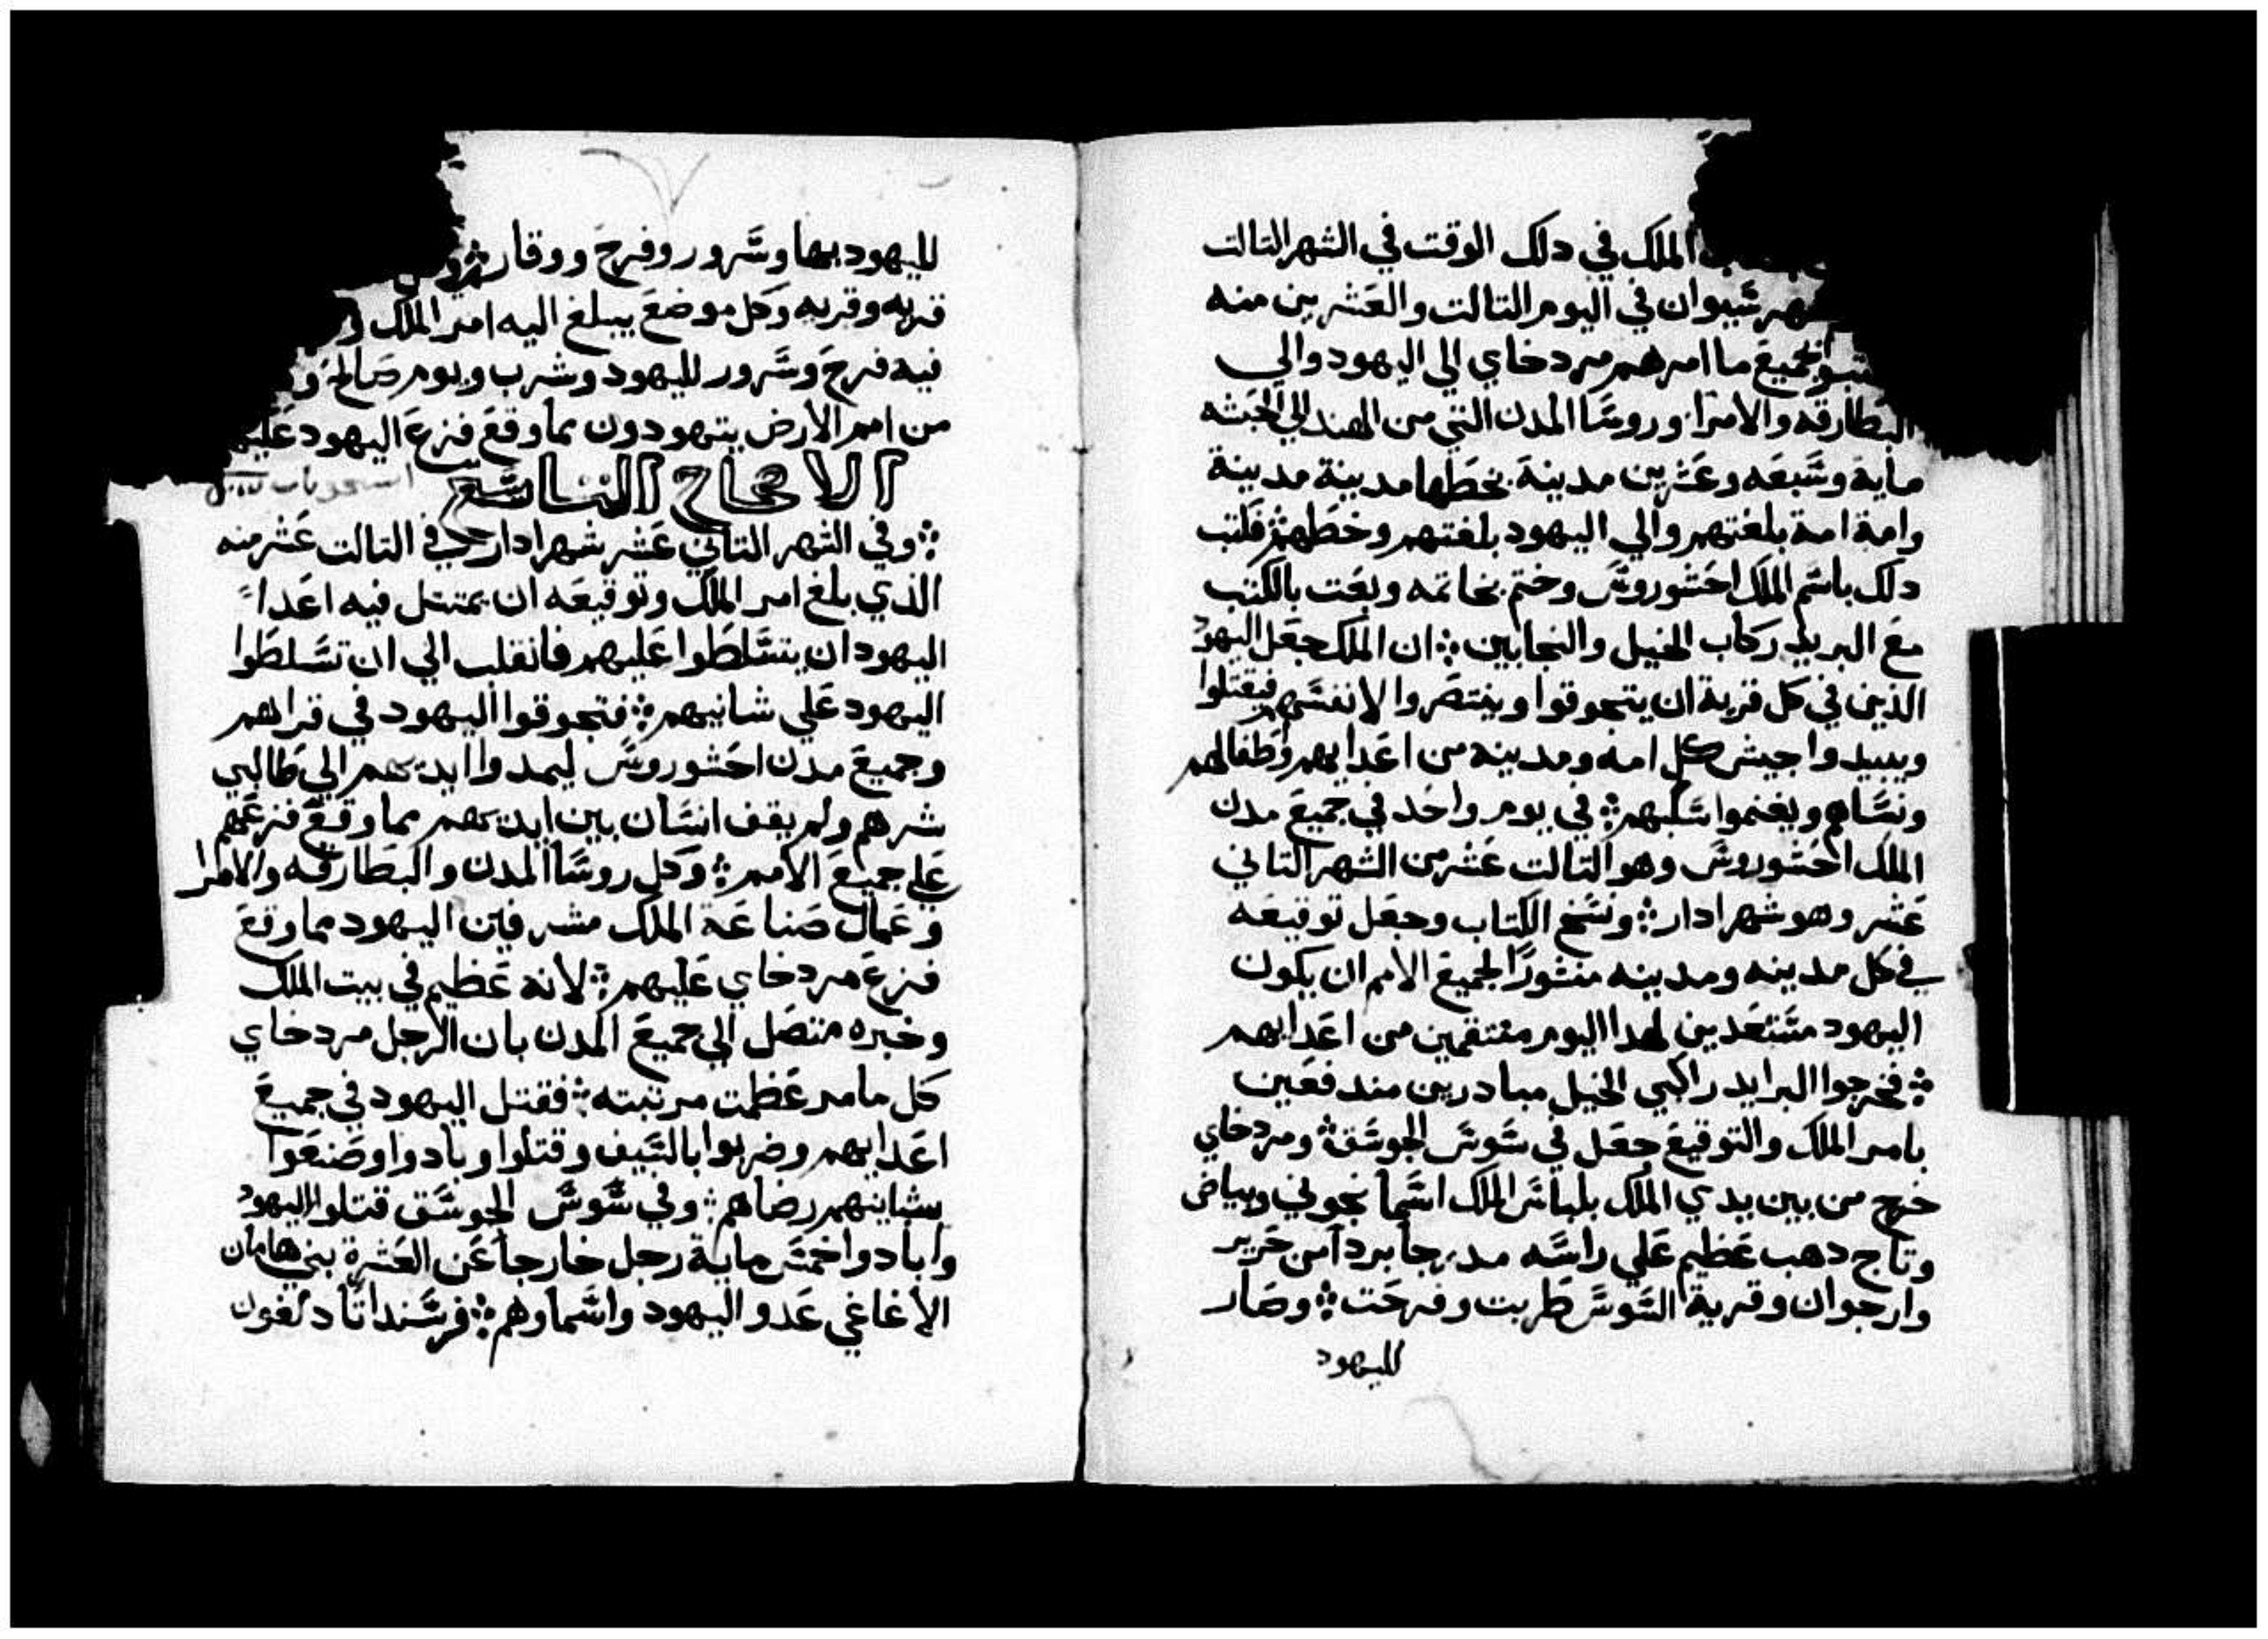 الملك في دلك الوقت في الشهر التالت
شهر سيوان في اليوم التالت والعشرين منه
بجميع ما امرهم مردخاي الي اليهود والي
البطارقه والامرا وروسا المدن التي من الهند الي الحبشه
ماية وسبعه وعشرين مدينة بخطها مدينة مدينة
وامة امة بلغتهم والي اليهود بلغتهم وخطهم ⁘ فكتب
دلك باسم الملك احشوروس وختم بخاتمه وبعت بالكتب
مع البريد ركاب الخيل والنجابين ⁘ ان الملك جعل اليهود
الذين في كل قرية ان يتجوقوا وينتصروا لانفسهم فيقتلوا
ويبيدوا جيش كل امه ومدينه من اعدايهم وطفالهم
ونساهم ويغنموا سلبهم ⁘ في يوم واحد في جميع مدن
الملك احشوروس وهو التالت عشر من الشهر التاني
عشر وهو شهر ادار ⁘ ونسخ الكتاب وجعل توقيعه
في كل مدينه ومدينه منشورًا لجميع الامم ان يكون
اليهود مستعدين لهدا اليوم منتقمين من اعدايهم
⁘ فخرجوا البرايد راكبي الخيل مبادرين مندفعين
بامر الملك والتوقيع جعل في سوس الجوسق ⁘ ومردخاي
خرج من بين يدي الملك بلباس الملك اسمانجوني وبياض
وتاج دهب عظيم علي راسه مدرجا بردا من حرير
وارجوان وقرية السوس طربت وفرحت ⁘ وصار
لليهود
لليهود بها وسرور وفرح ووقار ⁘
قريه وقريه وكل موضع يبلغ اليه امر الملك
فيه فرح وسرور لليهود وشرب ويوم صالح و
من امم الارض يتهودون بما وقع فزع اليهود عليهم
الاصحاح التاسع
⁘ وفي الشهر التاني عشر شهر ادار في التالت عشر منه
الذي بلغ امر الملك وتوقيعه ان يمتتل فيه اعداً
اليهود ان يتسلطوا عليهم فانقلب الي ان تسلطوا
اليهود علي شانيهم ⁘ فتجوقوا اليهود في قراهم
وجميع مدن احشوروس ليمدوا ايديهم الي طالبي
شرهم ولم يقف انسان بين ايديهم بما وقع فزعهم
علي جميع الامم ⁘ وكل روسا المدن والبطارقه والامرا
وعمال صناعة الملك مشرفين اليهود مما وقع
فزع مردخاي عليهم ⁘ لانه عظيم في بيت الملك
وخبره متصل الي جميع المدن بان الرجل مردخاي
كل مامر عظمت مرتبته ⁘ فقتل اليهود في جميع
اعدايهم وضربوا بالسيف وقتلوا وبادوا وصنعوا
بشانيهم رضاهم ⁘ وفي سوس الجوسق قتلوا اليهود
وابادوا خمس ماية رجل خارجا عن العشرة بني هامان
الاغاغي عدو اليهود واسماوهم ⁘ فرسنداتا دلفون